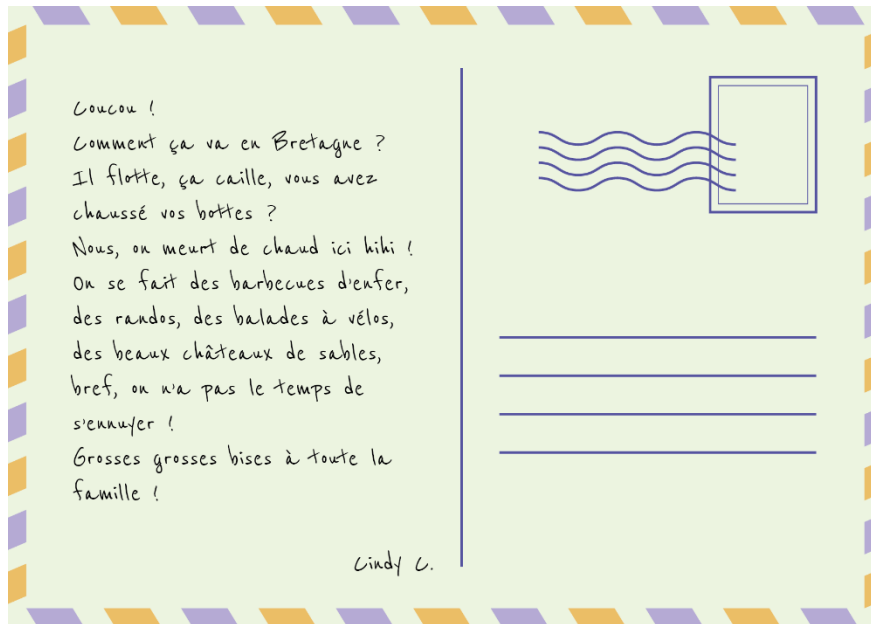 Coucou !
Comment ça va en Bretagne ?
Il flotte, ça caille, vous avez
chaussé vos bottes ?
Nous, on meurt de chaud ici hihi !
On se fait des barbecues d'enfer,
des randos, des balades à vélos,
des beaux châteaux de sables,
bref, on n'a pas le temps de
s'ennuyer !
Grosses grosses bises à toute la
famille !
Cindy C.